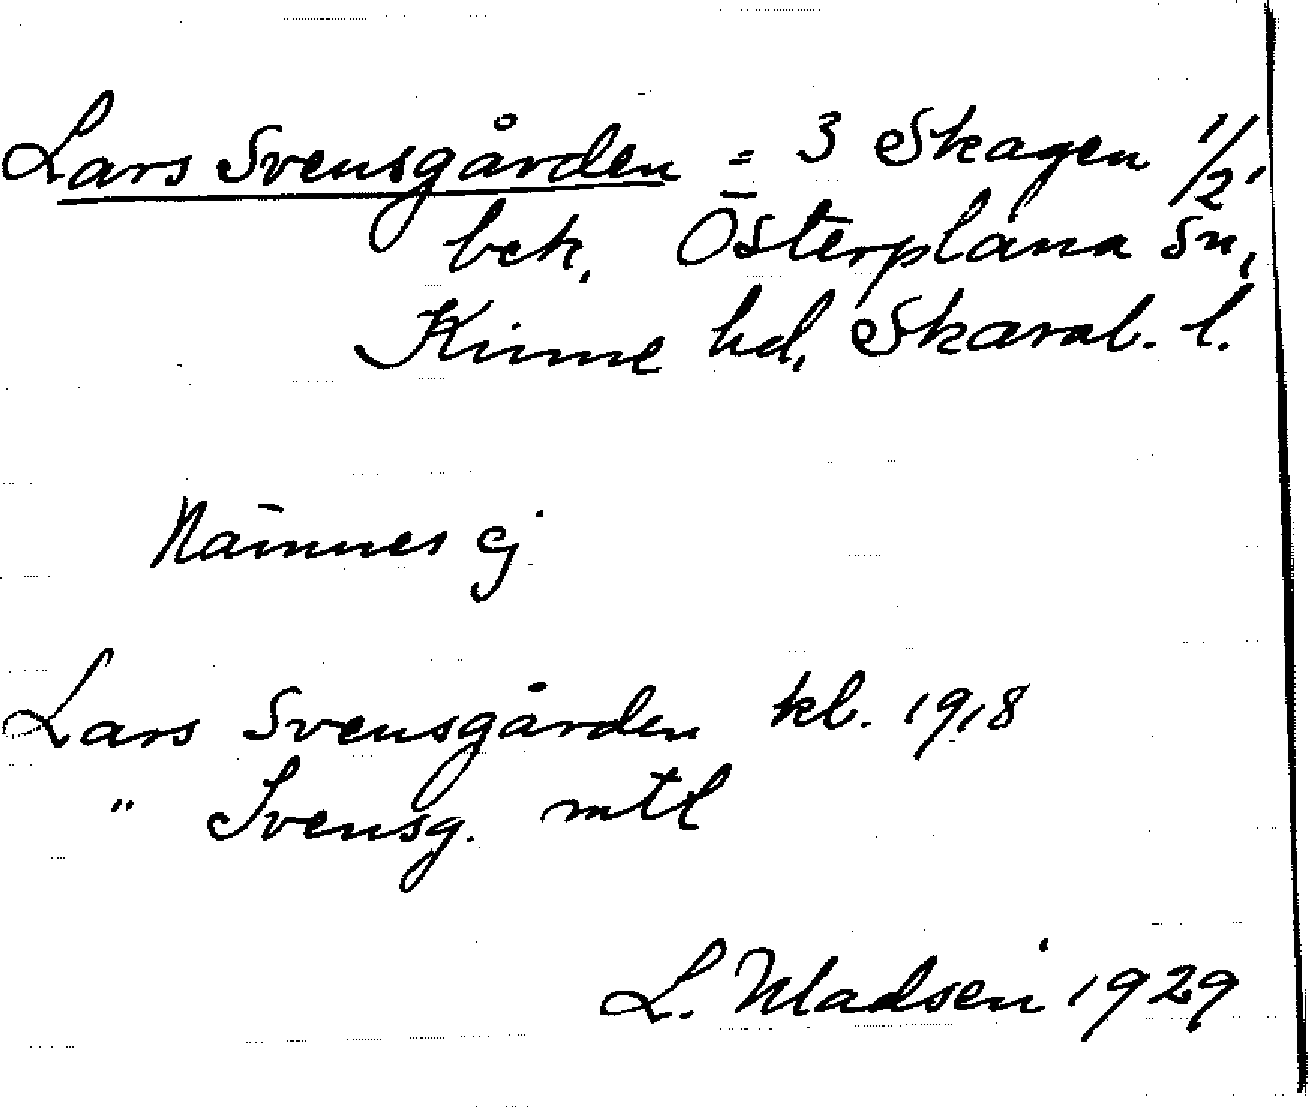 Lars Svensgården = 3 Skagen 1/2
beh. Österplana sn,
Kinne hd, Skarab. l.
Nämnes ej
Lars Svensgården kb. 1918
" Svensg. mtl
L. Madsen 1929